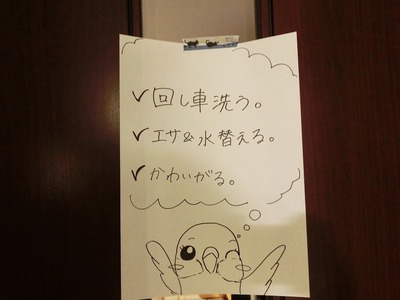 ✓回し車洗う。
✓エサ&水替える。
✓かわいがる。